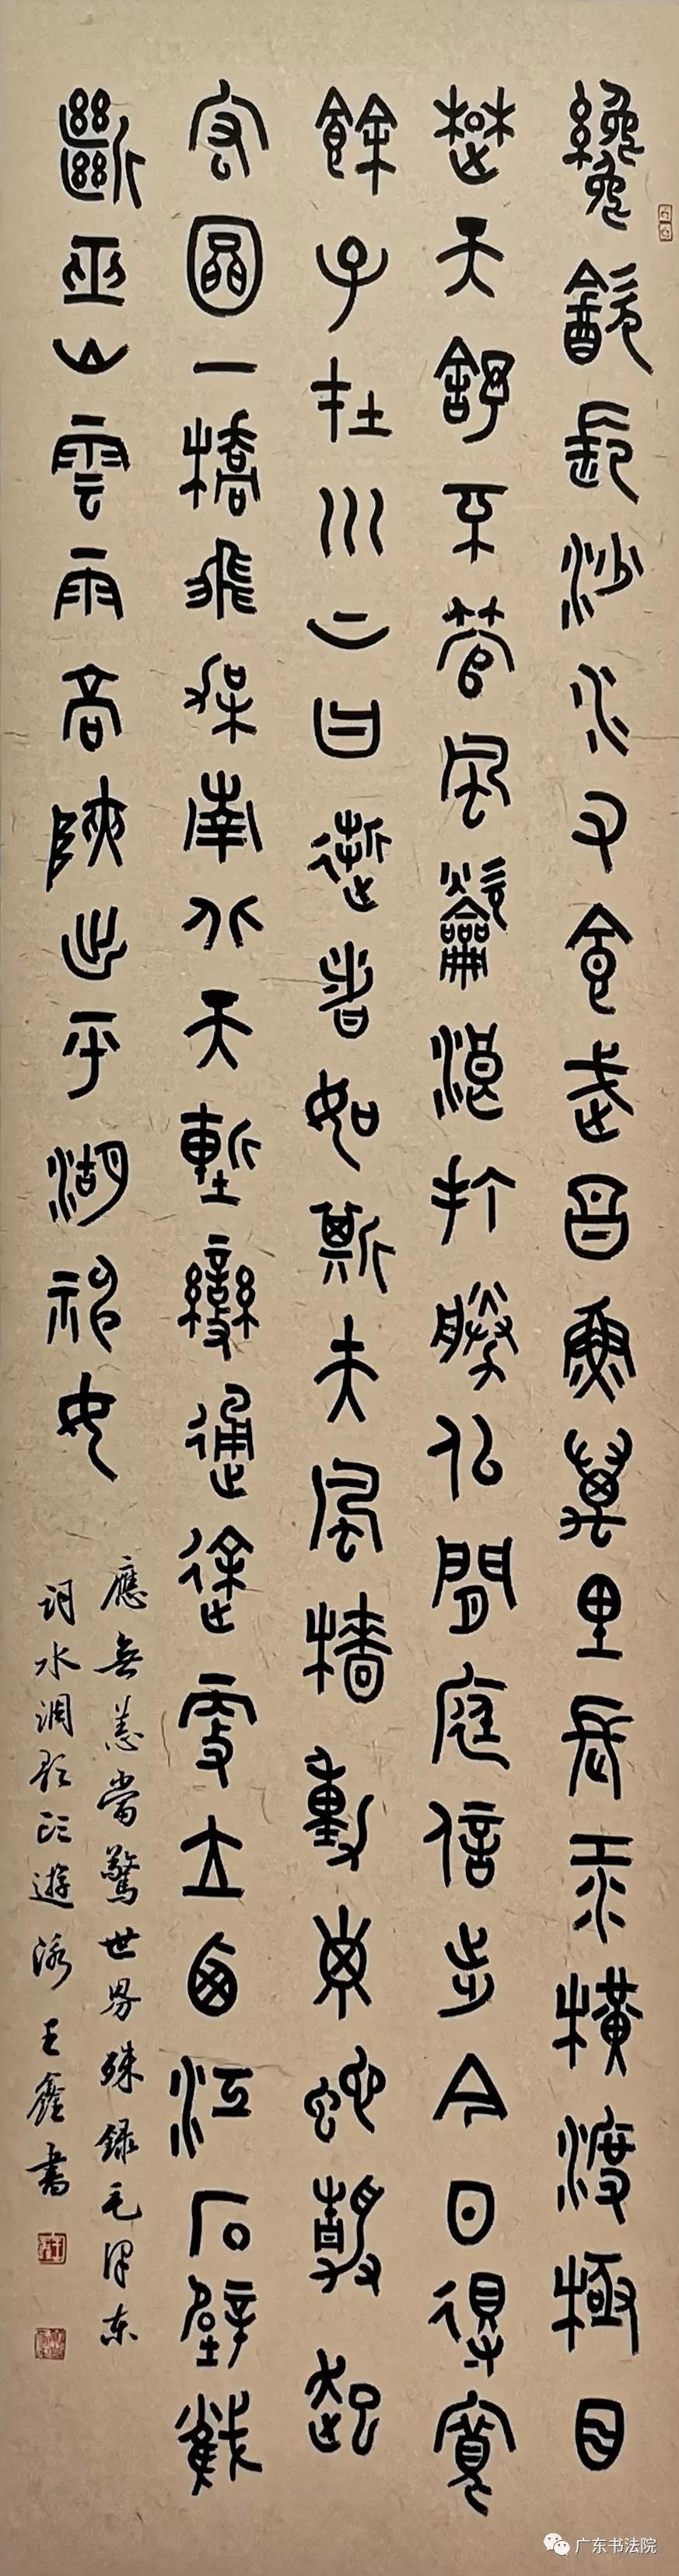 纔飲長沙水又食武昌魚萬里長江橫渡極目
楚天舒不管風吹浪打勝似閒庭信步今日得寬
餘子在川上曰逝者如斯夫風檣動龜蛇靜起
宏圖一橋飛架南北天塹變通途更立西江石壁截
斷巫山雲雨高峽出平湖神女
應無恙當驚世界殊錄毛澤東
詞水調歌頭游泳王鑫書
广东书法院